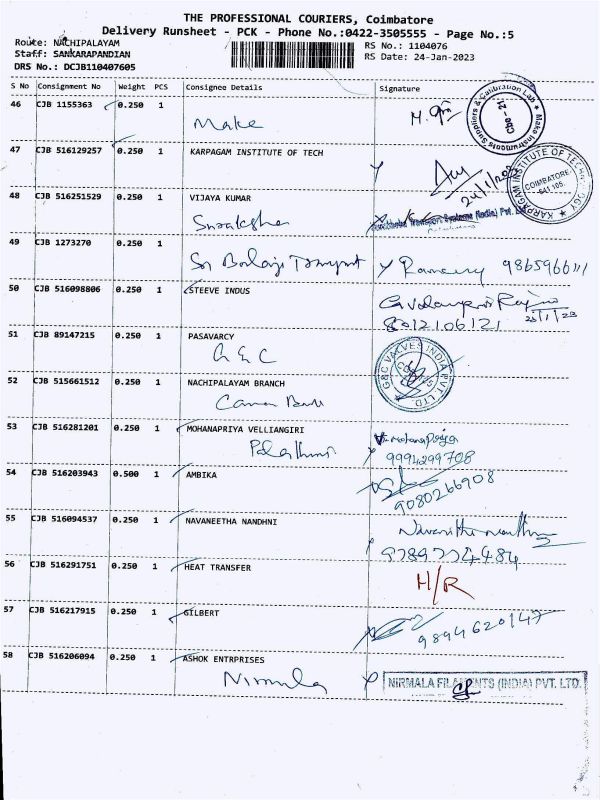 THE PROFESSIONAL COURIERS, Coimbatore
Delivery Runsheet - PCK - Phone No.:0422-3505555 - Page No.:5
Route: NACHIPALAYAM
RS No.: 1104076
Staff: SANKARAPANDIAN
RS Date: 24-Jan-2023
DRS No.: DCJB110407605
S No Consignment No Weight PCS Consignee Details Signature
46 CJB 1155363 0.250 1
Make
47 CJB 516129257 0.250 1 KARPAGAM INSTITUTE OF TECH
24/1/2023
KARPAGAM INSTITUTE OF TECHNOLOGY
COIMBATORE
641 105.
48 CJB 516251529 0.250 1 VIJAYA KUMAR
Transport Systems (India) Pvt.
49 CJB 1273270 0.250 1
Sri Balaji Transport
50 CJB 516098806 0.250 1 STEEVE INDUS
8012106121
51 CJB 89147215 0.250 1 PASAVARCY
G & C
G&C VALVES INDIA PVT. LTD.
52 CJB 515661512 0.250 1 NACHIPALAYAM BRANCH
Canara Bank
53 CJB 516281201 0.250 1 MOHANAPRIYA VELLIANGIRI
9994299708
54 CJB 516203943 0.500 1 AMBIKA
9080266908
55 CJB 516094537 0.250 1 NAVANEETHA NANDHNI
9789774484
56 CJB 516291751 0.250 1 HEAT TRANSFER
H/R
57 CJB 516217915 0.250 1 GILBERT
9894620147
58 CJB 516206094 0.250 1 ASHOK ENTRPRISES
Nirmala
NIRMALA FILAMENTS (INDIA) PVT. LTD.